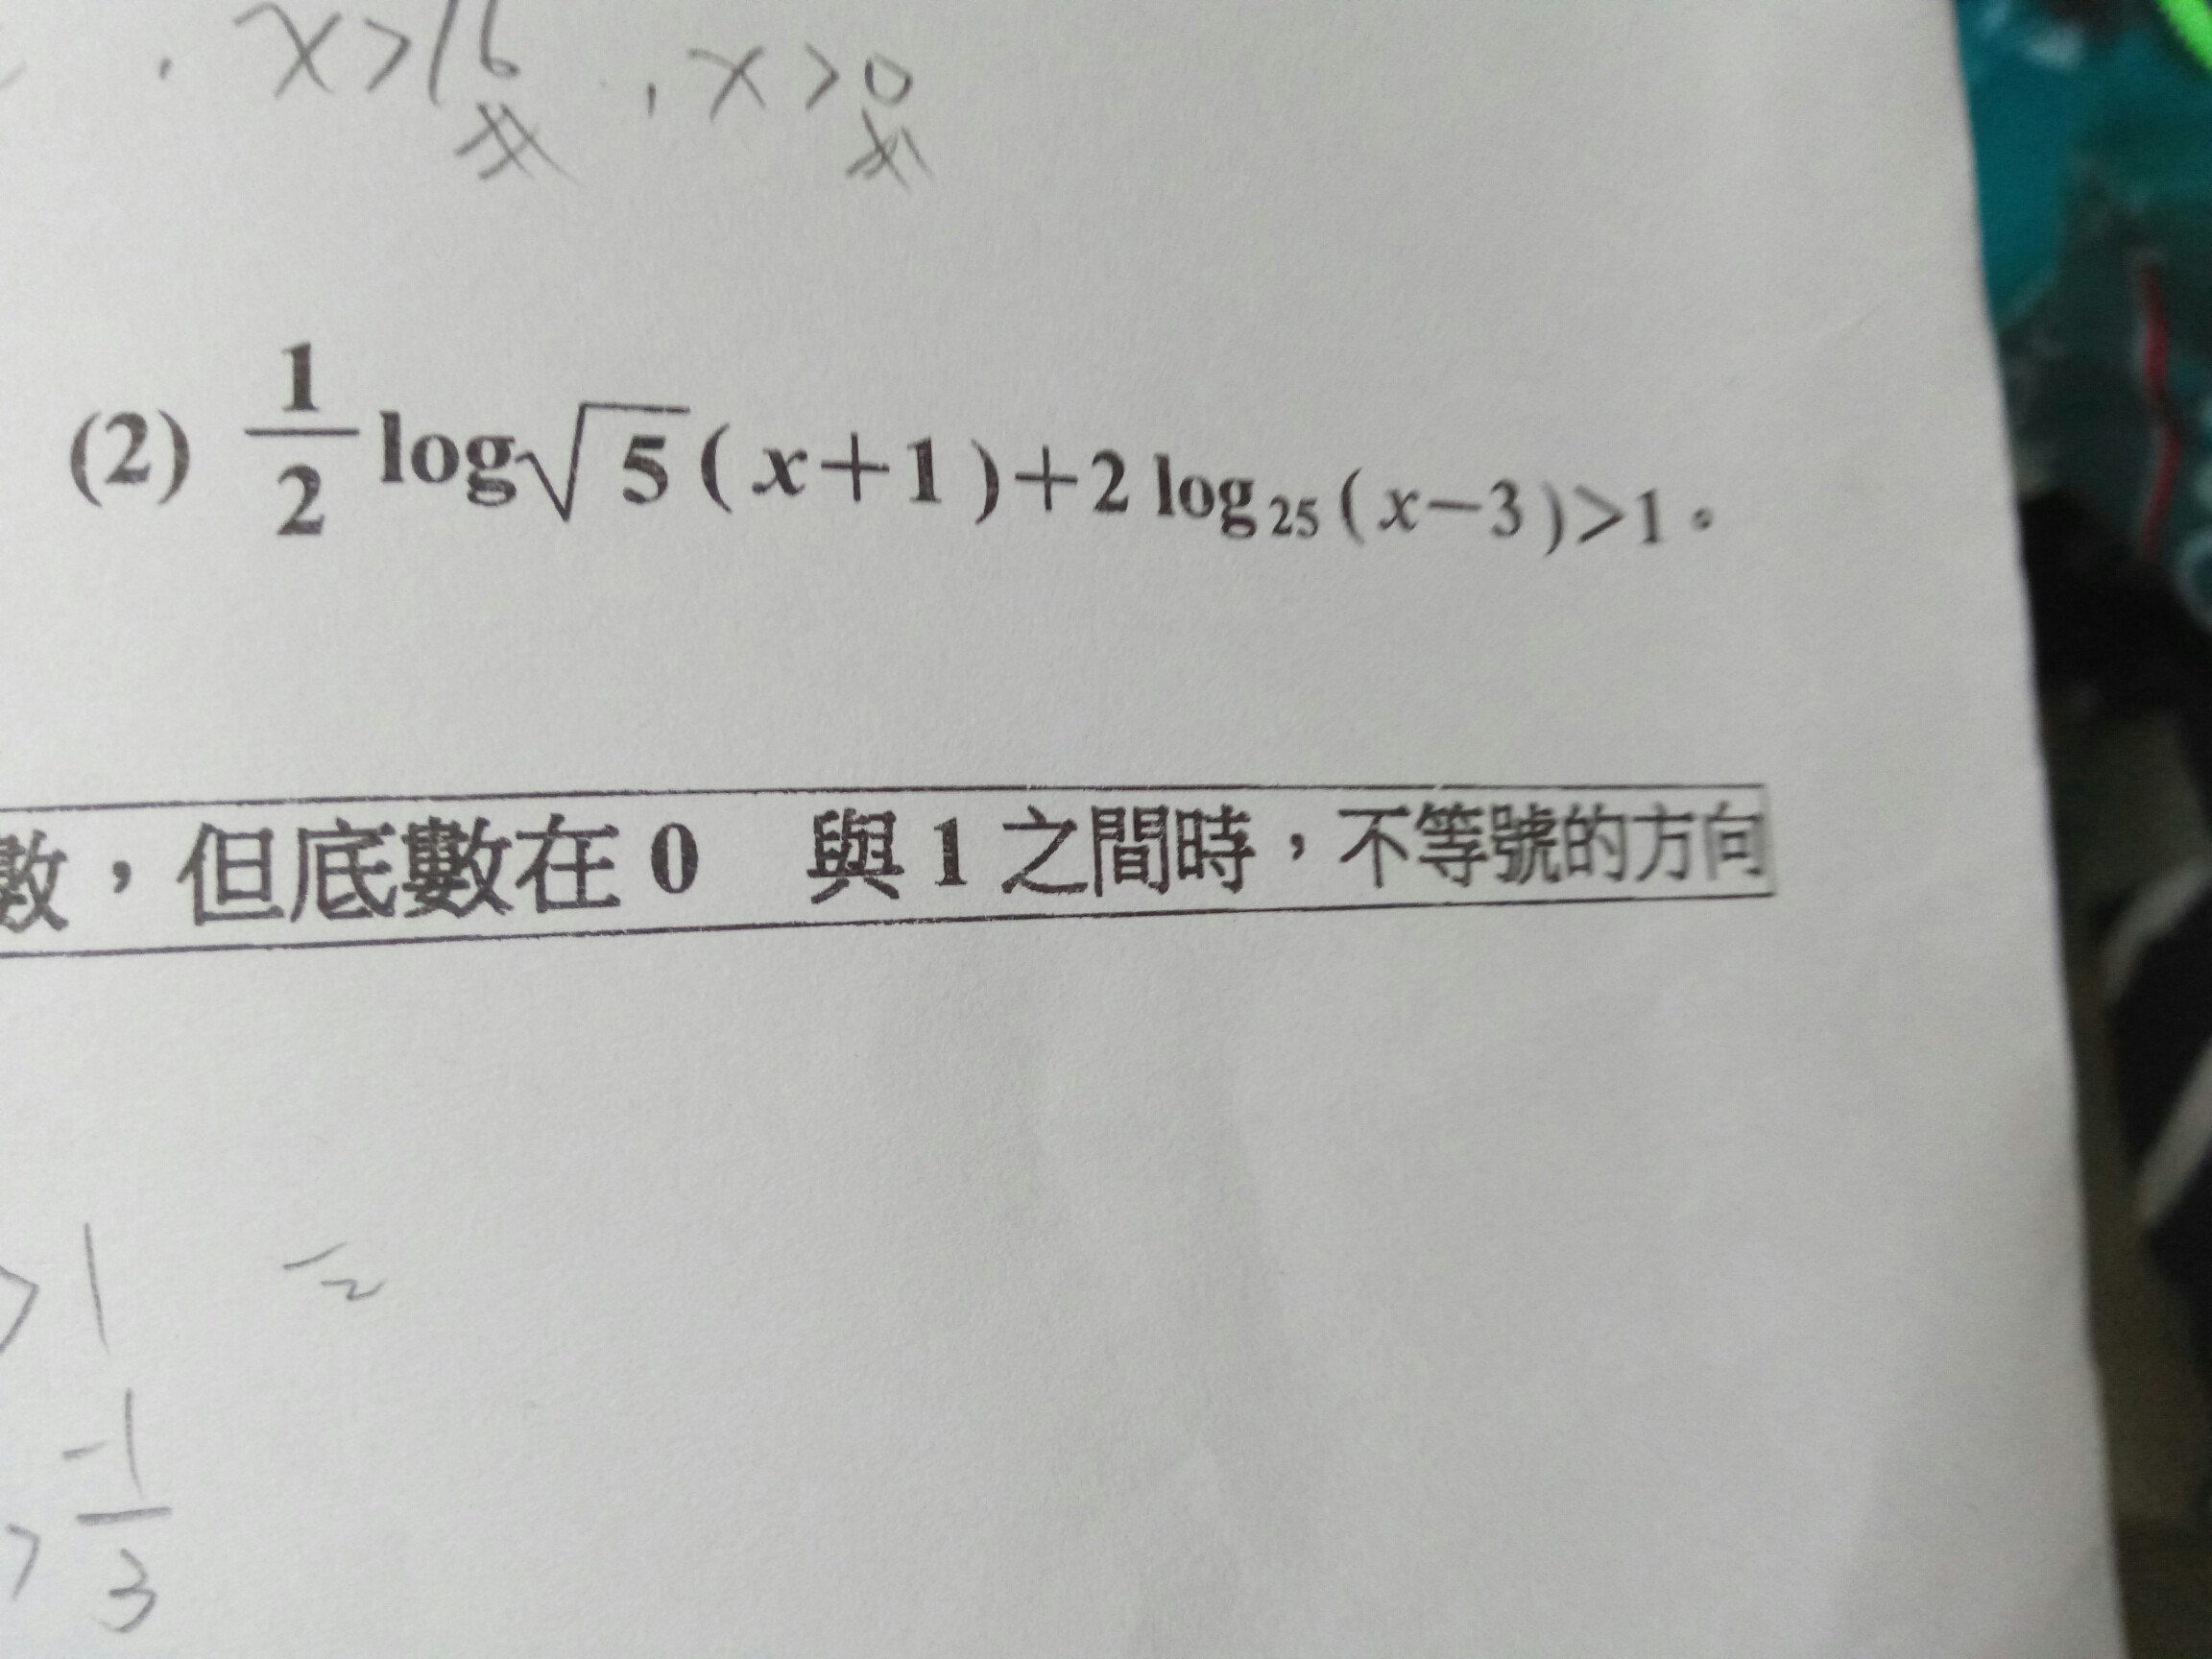 , x>16 , x>0
(2) 1/2 log√5(x+1)+2 log₂₅(x−3)>1。
數，但底數在 0 與 1 之間時，不等號的方向
>1
> -1/3